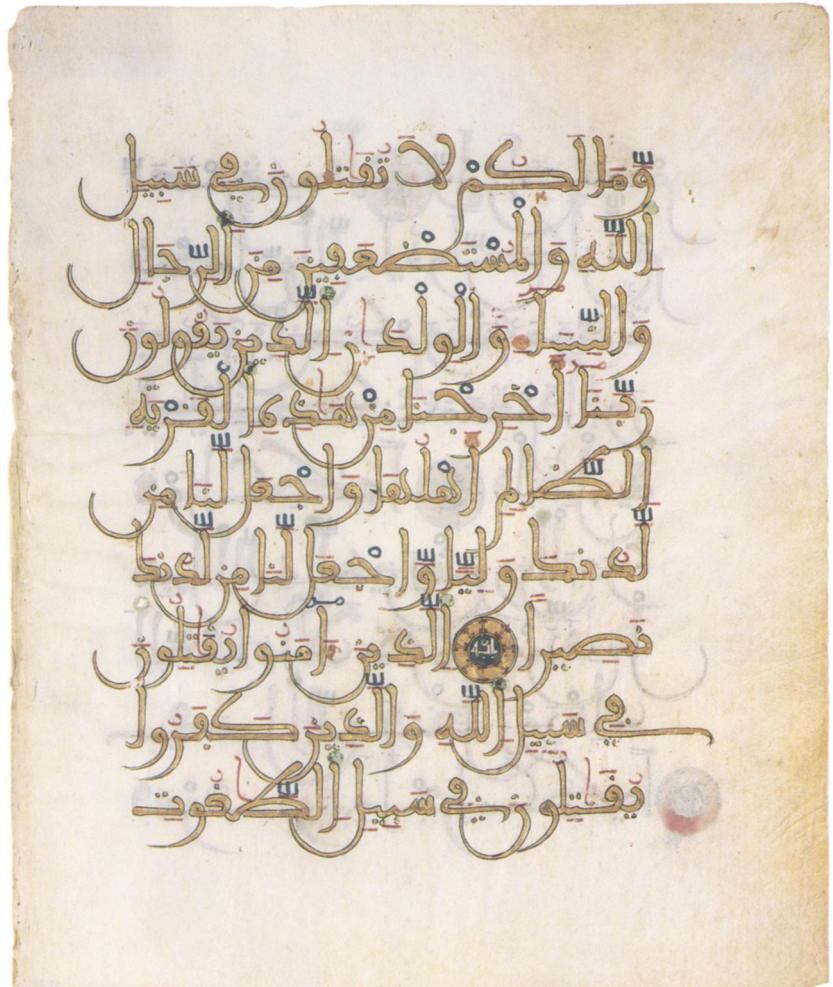 وَّمَا لَكُمْ لَا تُقَٰتِلُونَ فِي سَبِيلِ
اِ۬للَّهِ وَالْمُسْتَضْعَفِينَ مِنَ اَ۬لرِّجَالِ
وَالنِّسَآءِ وَالْوِلْدَٰنِ اِ۬لَّذِينَ يَقُولُونَ
رَبَّنَآ أَخْرِجْنَا مِنْ هَٰذِهِ اِ۬لْقَرْيَةِ
اِ۬لظَّالِمِ أَهْلُهَا وَاجْعَل لَّنَا مِن
لَّدُنكَ وَلِيّاً وَّاجْعَل لَّنَا مِن لَّدُنكَ
نَصِيراً اَ۬لَّذِينَ ءَامَنُواْ يُقَٰتِلُونَ
فِي سَبِيلِ اِ۬للَّهِ وَالَّذِينَ كَفَرُواْ
يُقَٰتِلُونَ فِي سَبِيلِ اِ۬لطَّٰغُوتِ